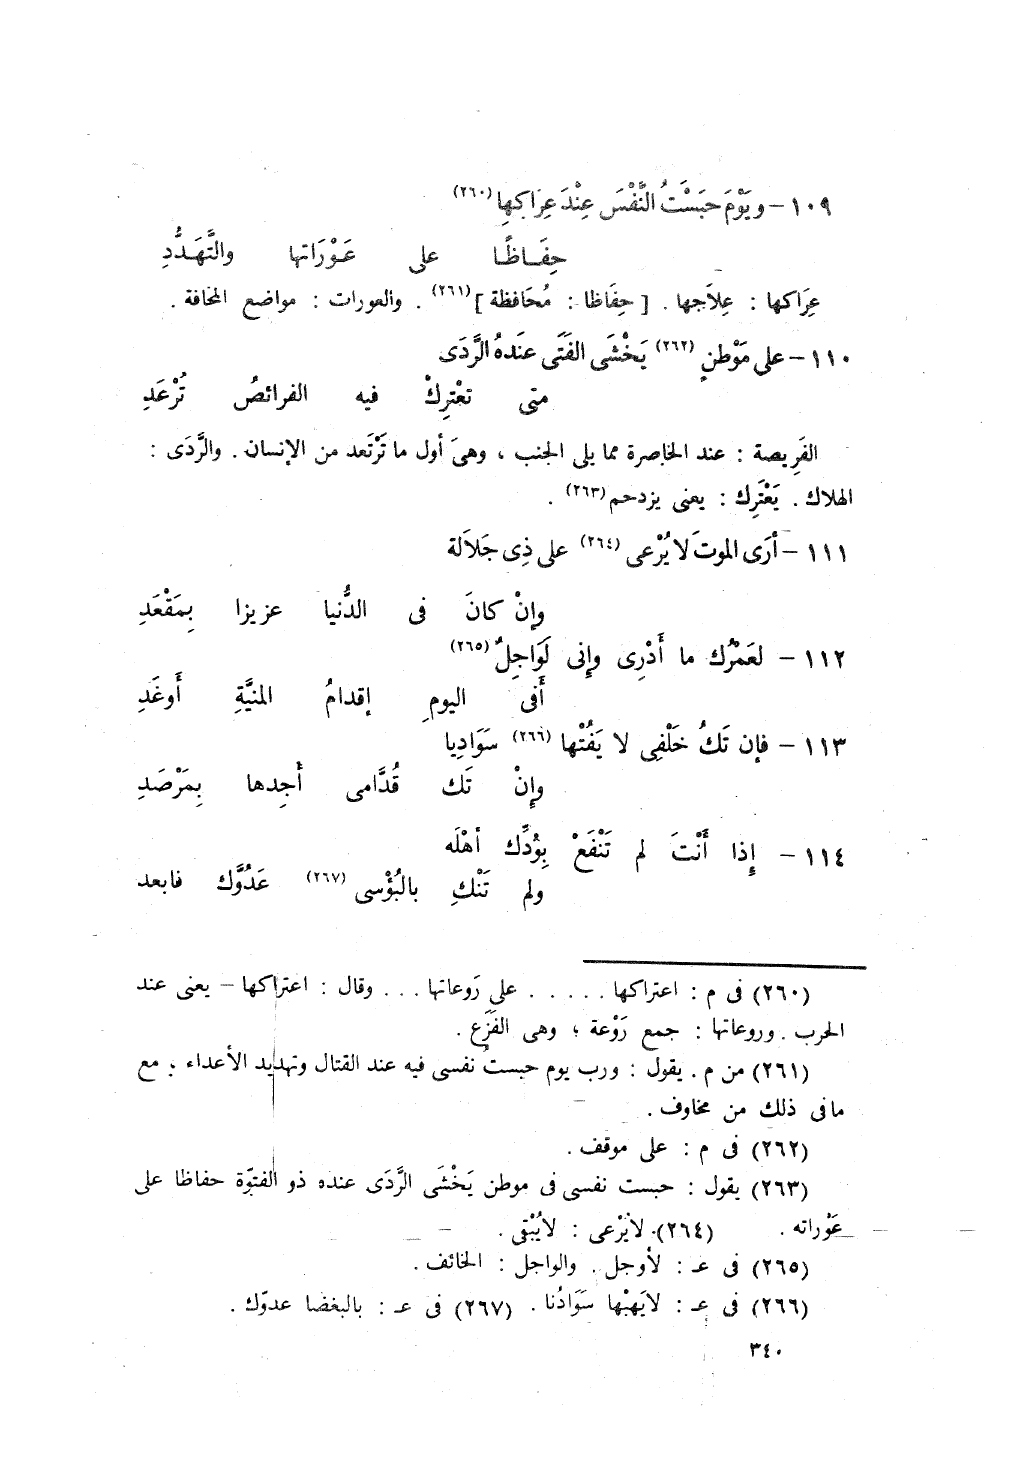 ١٠٩ – ويَوْمَ حبَسْتُ النَّفْسَ عِنْدَ عِرَاكِها (٢٦٠)
حِفَـاظًـا على عَـوْرَاتها والتَّهَـدُّدِ
عِرَاكها : عِلاَجها . [ حِفَاظا : مُحَافظة ] (٢٦١) . والعورات : مواضع المخافة .
١١٠ – على مَوْطنٍ (٢٦٢) يَخْشَى الفَتَى عندهُ الرَّدَى
متى تعْتركْ فيه الفرائصُ تُرْعَدِ
الفَرِيصة : عند الخاصرة مما يلى الجنب ، وهىَ أول ما تَرْتَعد من الإنسان . والرَّدَى :
الهلاك . يَعْتَرِك : يعنى يزدحم (٢٦٣) .
١١١ – أرَى الموتَ لا يُرْعى (٢٦٤) على ذِى جَلاَلة
وإنْ كانَ فى الدُّنيا عزيزا بِمَقْعَدِ
١١٢ – لعَمْرُك ما أَدْرِى وإنى لَوَاجِلٌ (٢٦٥)
أَفى اليومِ إقدامُ المنيَّةِ أَوغَدِ
١١٣ – فإن تَكُ خَلْفِى لا يَفُتْها (٢٦٦) سَوَادِيا
وإِنْ تَك قُدَّامى أَجِدها بِمَرْصَدِ
١١٤ – إِذا أَنْتَ لم تَنْفَعْ بِوُدِّك أهْلَه
ولم تَنْكِ بالبُؤْسى (٢٦٧) عَدُوَّك فابعد
(٢٦٠) فى م : اعتراكها . . . . . على رَوعاتها . . . وقال : اعتراكها – يعنى عند
الحرب . وروعاتها : جمع رَوْعة ؛ وهى الفَزَع .
(٢٦١) من م . يقول : ورب يوم حبستُ نفسى فيه عند القتال وتهديد الأعداء ، مع
ما فى ذلك من مخاوف .
(٢٦٢) فى م : على موقف .
(٢٦٣) يقول : حبست نفسى فى موطن يَخْشَى الرَّدَى عنده ذو الفتوّة حفاظا على
عَوْراته . (٢٦٤) لايُرْعى : لايُبْقى .
(٢٦٥) فى عـ : لأوجل . والواجل : الخائف .
(٢٦٦) فى عـ : لايَهبْها سَوَادُنا . (٢٦٧) فى عـ : بالبغضا عدوّك .
٣٤٠